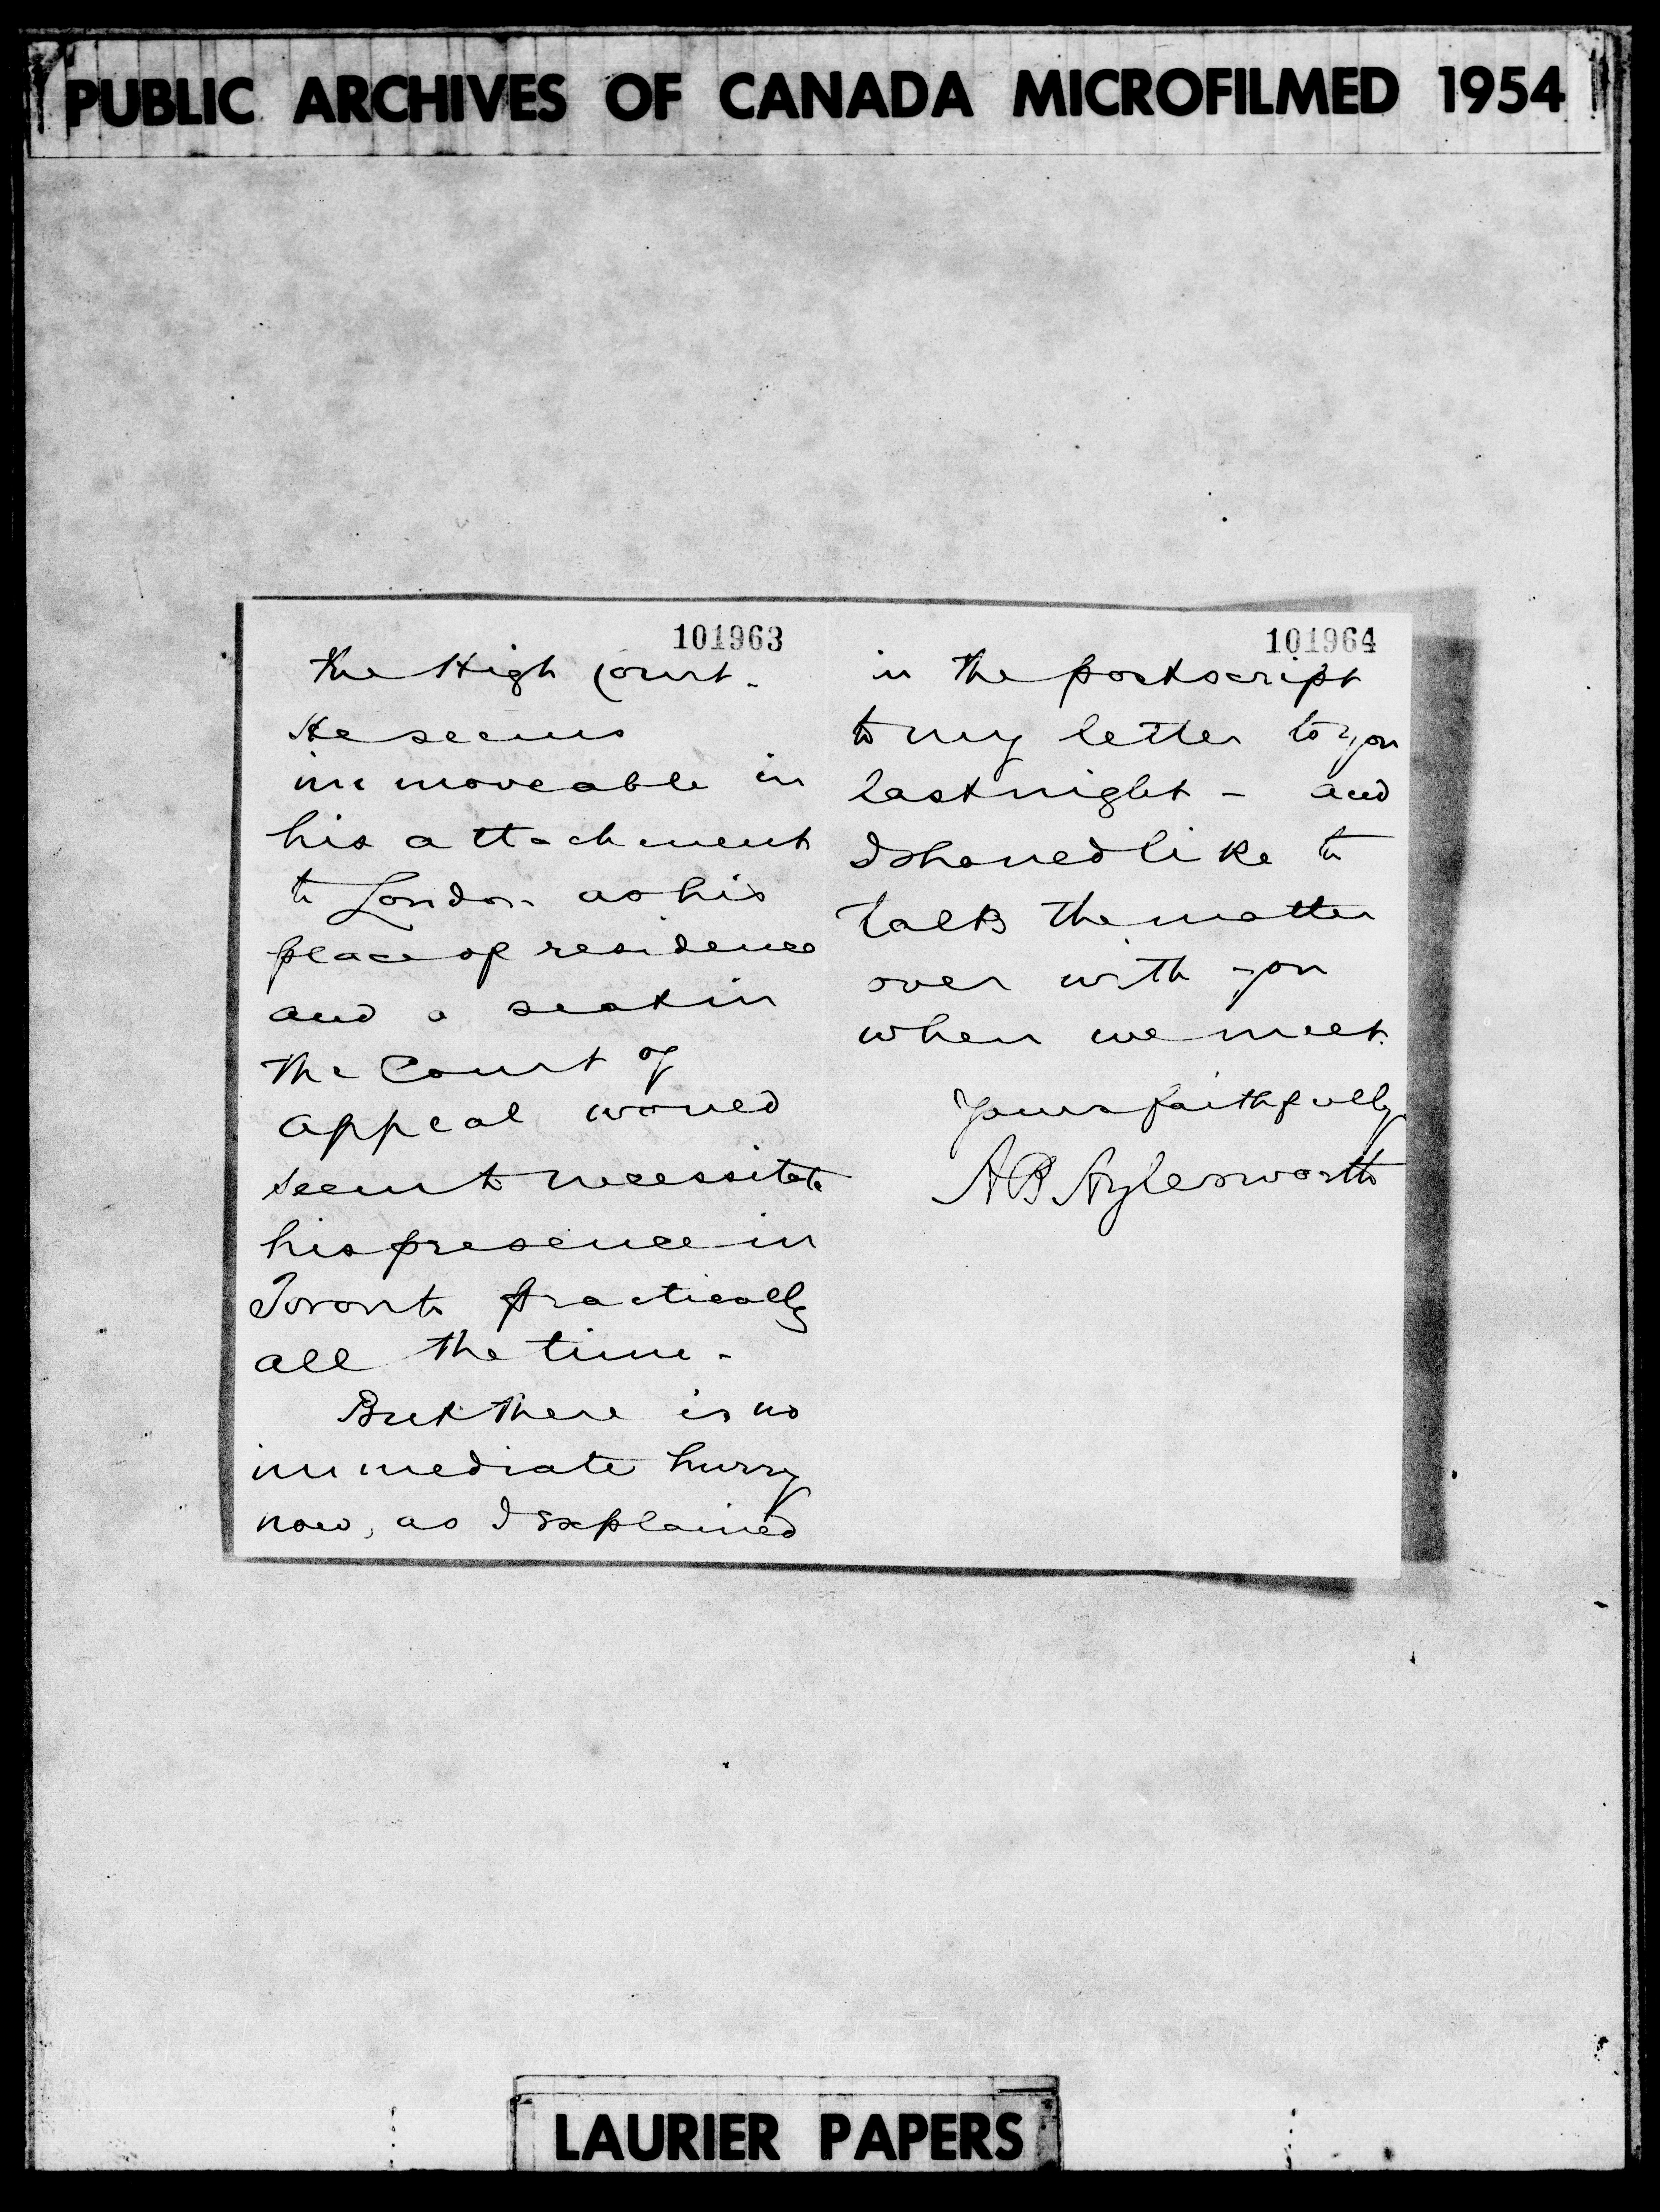 PUBLIC ARCHIVES OF CANADA MICROFILMED 1954
101963
the High Court.
He seems
immoveable in
his attachment
to London as his
place of residence
and a seat in
the Court of
Appeal would
seem to necessitate
his presence in
Toronto practically
all the time.
But there is no
immediate hurry
now, as I explained
101964
in the postscript
to my letter to you
last night - and
I should like to
talk the matter
over with you
when we meet.
Yours faithfully
A B Aylesworth
LAURIER PAPERS